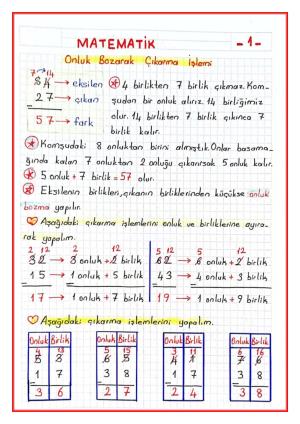 MATEMATİK -1-
Onluk Bozarak Çıkarma İşlemi
7 14
84 → eksilen ✱ 4 birlikten 7 birlik çıkmaz. Kom-
27 → çıkan şudan bir onluk alırız. 14 birliğimiz
olur. 14 birlikten 7 birlik çıkınca 7
57 → fark birlik kalır.
✱ Komşudaki 8 onluktan birini almıştık. Onlar basama-
ğında kalan 7 onluktan 2 onluğu çıkarırsak 5 onluk kalır.
✱ 5 onluk + 7 birlik = 57 olur.
✱ Eksilenin birlikleri, çıkanın birliklerinden küçükse onluk
bozma yapılır.
Aşağıdaki çıkarma işlemlerini onluk ve birliklerine ayıra-
rak yapalım.
2 12 2 12 5 12 5 12
32 → 3 onluk + 2 birlik 62 → 6 onluk + 2 birlik
15 → 1 onluk + 5 birlik 43 → 4 onluk + 3 birlik
17 → 1 onluk + 7 birlik 19 → 1 onluk + 9 birlik
Aşağıdaki çıkarma işlemlerini yapalım.
Onluk Birlik Onluk Birlik Onluk Birlik Onluk Birlik
4 13 5 15 3 11 6 16
5 3 6 5 4 1 7 6
1 7 3 8 1 7 3 8
3 6 2 7 2 4 3 8